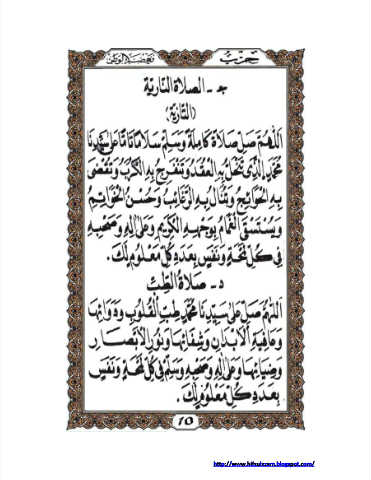 حزب
ج - الصلاة النارية
(التازية)
اللهم صل صلاة كاملة وسلم سلاما تاما على سيدنا
محمد الذي تنحل به العقد وتنفرج به الكرب وتقضى
به الحوائج وتنال به الرغائب وحسن الخواتم
ويستسقى الغمام بوجهه الكريم وعلى اله وصحبه
في كل لمحة ونفس بعدد كل معلوم لك.
د - صلاة الطب
اللهم صل على سيدنا محمد طب القلوب ودوائها
وعافية الابدان وشفائها ونور الابصار
وضيائها وعلى اله وصحبه وسلم في كل لمحة ونفس
بعدد كل معلوم لك.
10
http://www.hifsulscam.blogspot.com/